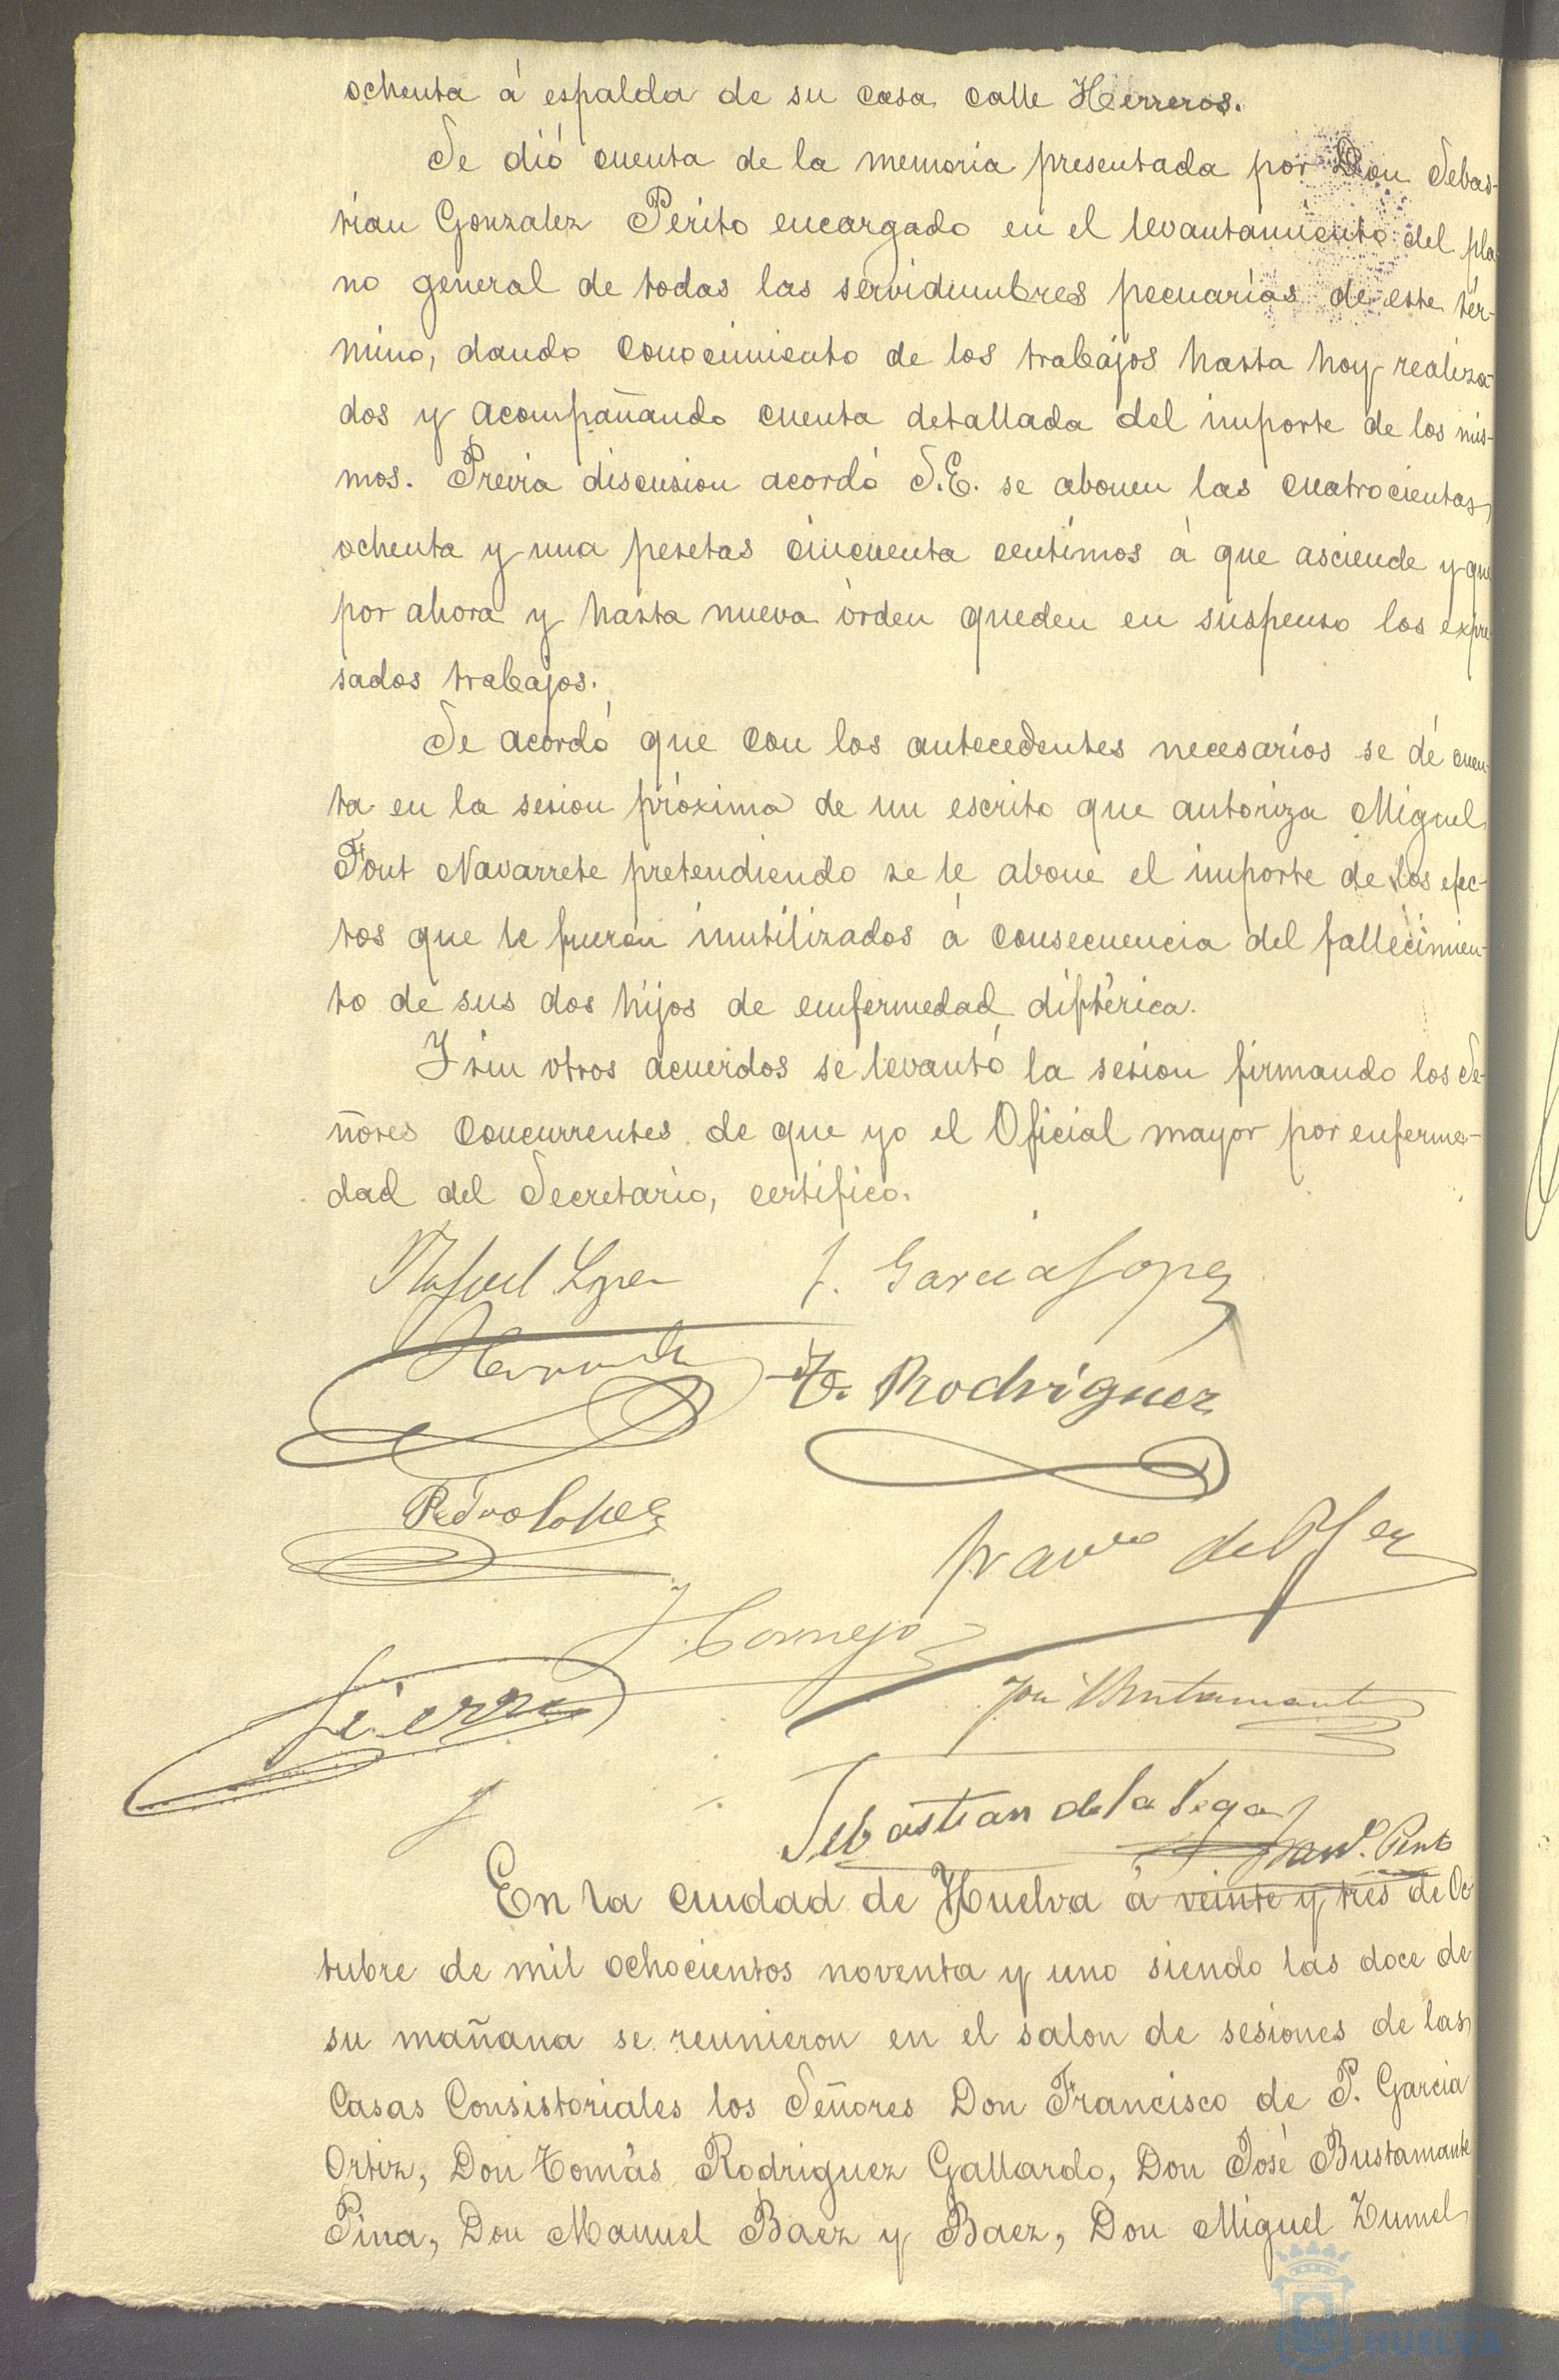 ochenta á espalda de su casa calle Herreros.
Se dió cuenta de la memoria presentada por Don Sebas-
tian Gonzalez Perito encargado en el levantamiento del pla-
no general de todas las servidumbres pecuarias de este tér-
mino, dando conocimiento de los trabajos hasta hoy realiza-
dos y acompañando cuenta detallada del importe de los mis-
mos. Previa discusion acordó S.E. se abonen las cuatrocientas
ochenta y una pesetas cincuenta centimos á que asciende y que
por ahora y hasta nueva órden queden en suspenso los expre-
sados trabajos.
Se acordó que con los antecedentes necesarios se dé cuen-
ta en la sesion próxima de un escrito que autoriza Miguel
Font Navarrete pretendiendo se le abone el importe de los efec-
tos que le fueron inutilizados á consecuencia del fallecimien-
to de sus dos hijos de enfermedad diftérica.
Y sin otros acuerdos se levantó la sesion firmando los Se-
ñores concurrentes de que yo el Oficial mayor por enferme-
dad del Secretario, certifico.
Rafael Lopez J. Garcia Lopez
Hernandez T. Rodriguez
Pedro Lopez
J. Cornejo
Sierra José Bustamante
Sebastian de la Vega
En la ciudad de Huelva á veinte y tres de Oc-
tubre de mil ochocientos noventa y uno siendo las doce de
su mañana se reunieron en el salon de sesiones de las
Casas Consistoriales los Señores Don Francisco de P. Garcia
Ortiz, Don Tomás Rodriguez Gallardo, Don José Bustamante
Pina, Don Manuel Baez y Baez, Don Miguel Zumel
HUELVA